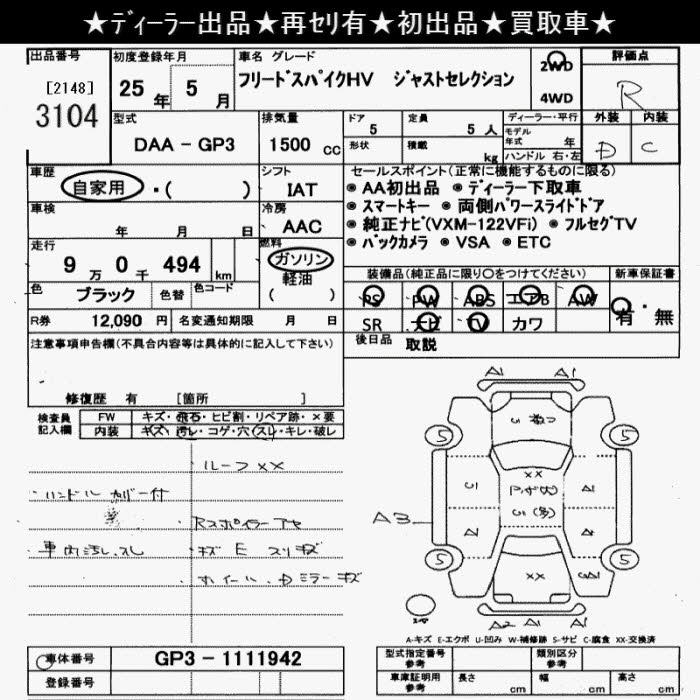 ★ディーラー出品★再セリ有★初出品★買取車★
出品番号
[2148]
3104
初度登録年月
25 年 5 月
車名 グレード
フリードスパイクHV ジャストセレクション
2WD
4WD
評価点
R
型式
DAA - GP3
排気量
1500 cc
ドア
5
定員
5 人
形状
積載
kg
ディーラー・平行
モデル
年式 年
ハンドル 右・左
外装
D
内装
C
車歴
自家用 ・( )
シフト
IAT
車検
年 月 日
冷房
AAC
走行
9 万 0 千 494 km
燃料
ガソリン
軽油
( )
色
ブラック
色替
色コード
R券 12,090 円
名変通知期限 月 日
セールスポイント(正常に機能するものに限る)
◉ AA初出品 ◉ ディーラー下取車
◉ スマートキー ◉ 両側パワースライドドア
◉ 純正ナビ(VXM-122VFi) ◉ フルセグTV
◉ バックカメラ ◉ VSA ◉ ETC
装備品(純正品に限り○をつけてください)
新車保証書
PS PW ABS エアB AW
SR ナビ TV カワ
有・無
後日品 取説
注意事項申告欄(不具合内容等は具体的に記入して下さい)
修復歴 有 [箇所 ]
検査員
記入欄
FW
キズ・飛石・ヒビ割・リペア跡・×要
内装
キズ・汚レ・コゲ・穴・スレ・キレ・破レ
ルーフ XX
・ハンドルカバー付
キズ E スリキズ
A1 A1
5 5
XX
A1
A3
5 5
XX
A2 A1 A1
A-キズ E-エクボ U-凹み W-補修跡 S-サビ C-腐食 XX-交換済
車体番号
GP3 - 1111942
登録番号
型式指定番号
参考
類別区分
参考
車庫証明用
参考
長さ cm
幅 cm
高さ cm